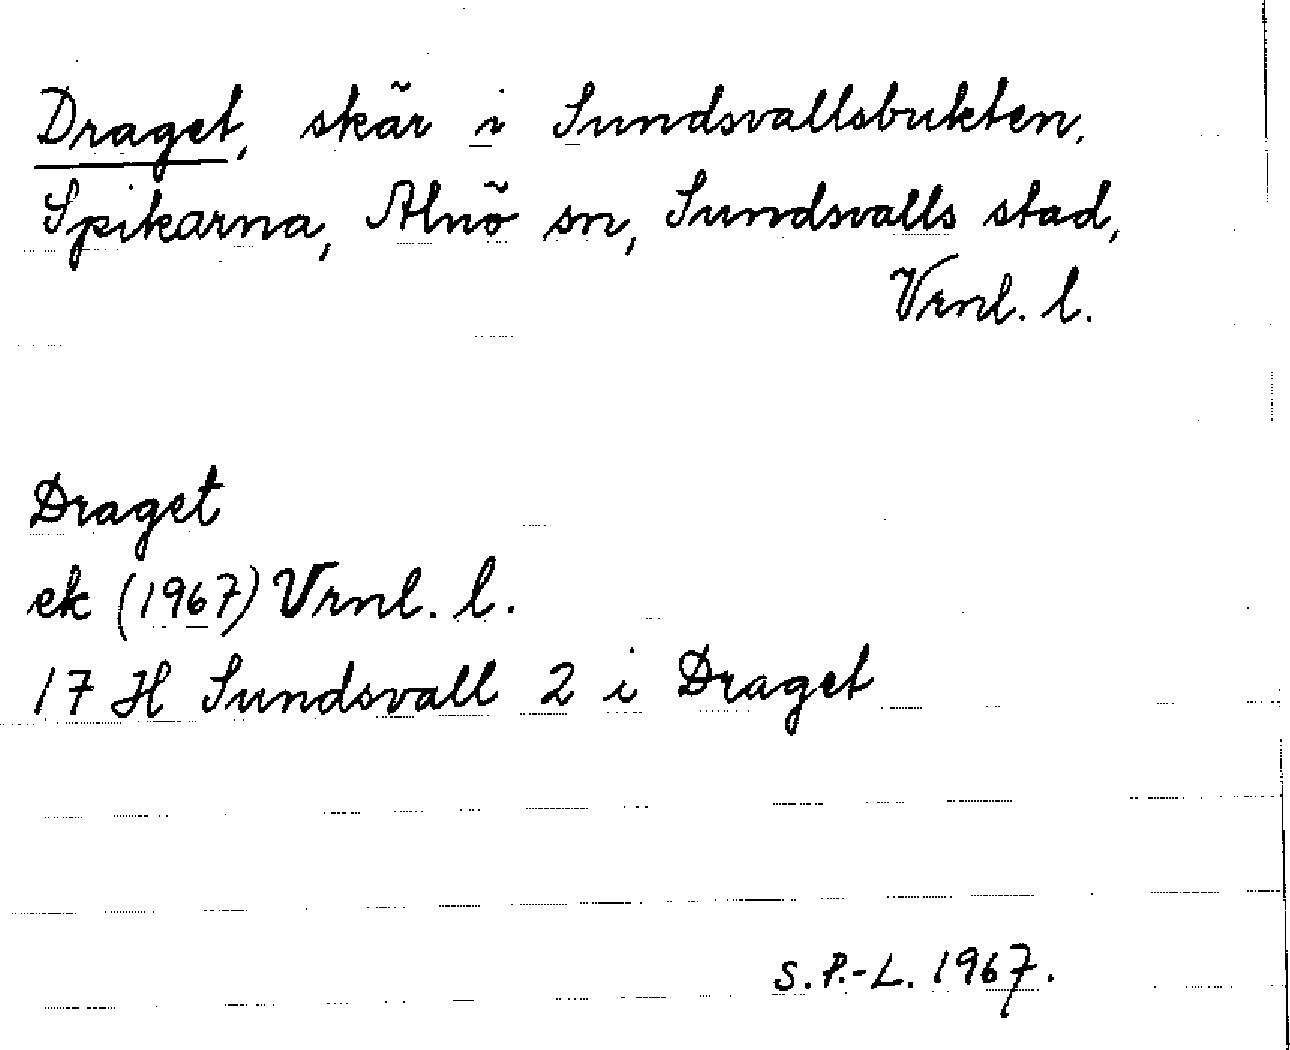 Draget, skär i Sundsvallsbukten,
Spikarna, Alnö sn, Sundsvalls stad,
Vrnl. l.
Draget
ek (1967) Vrnl. l.
17 H Sundsvall 2 i Draget
S.P.-L. 1967.